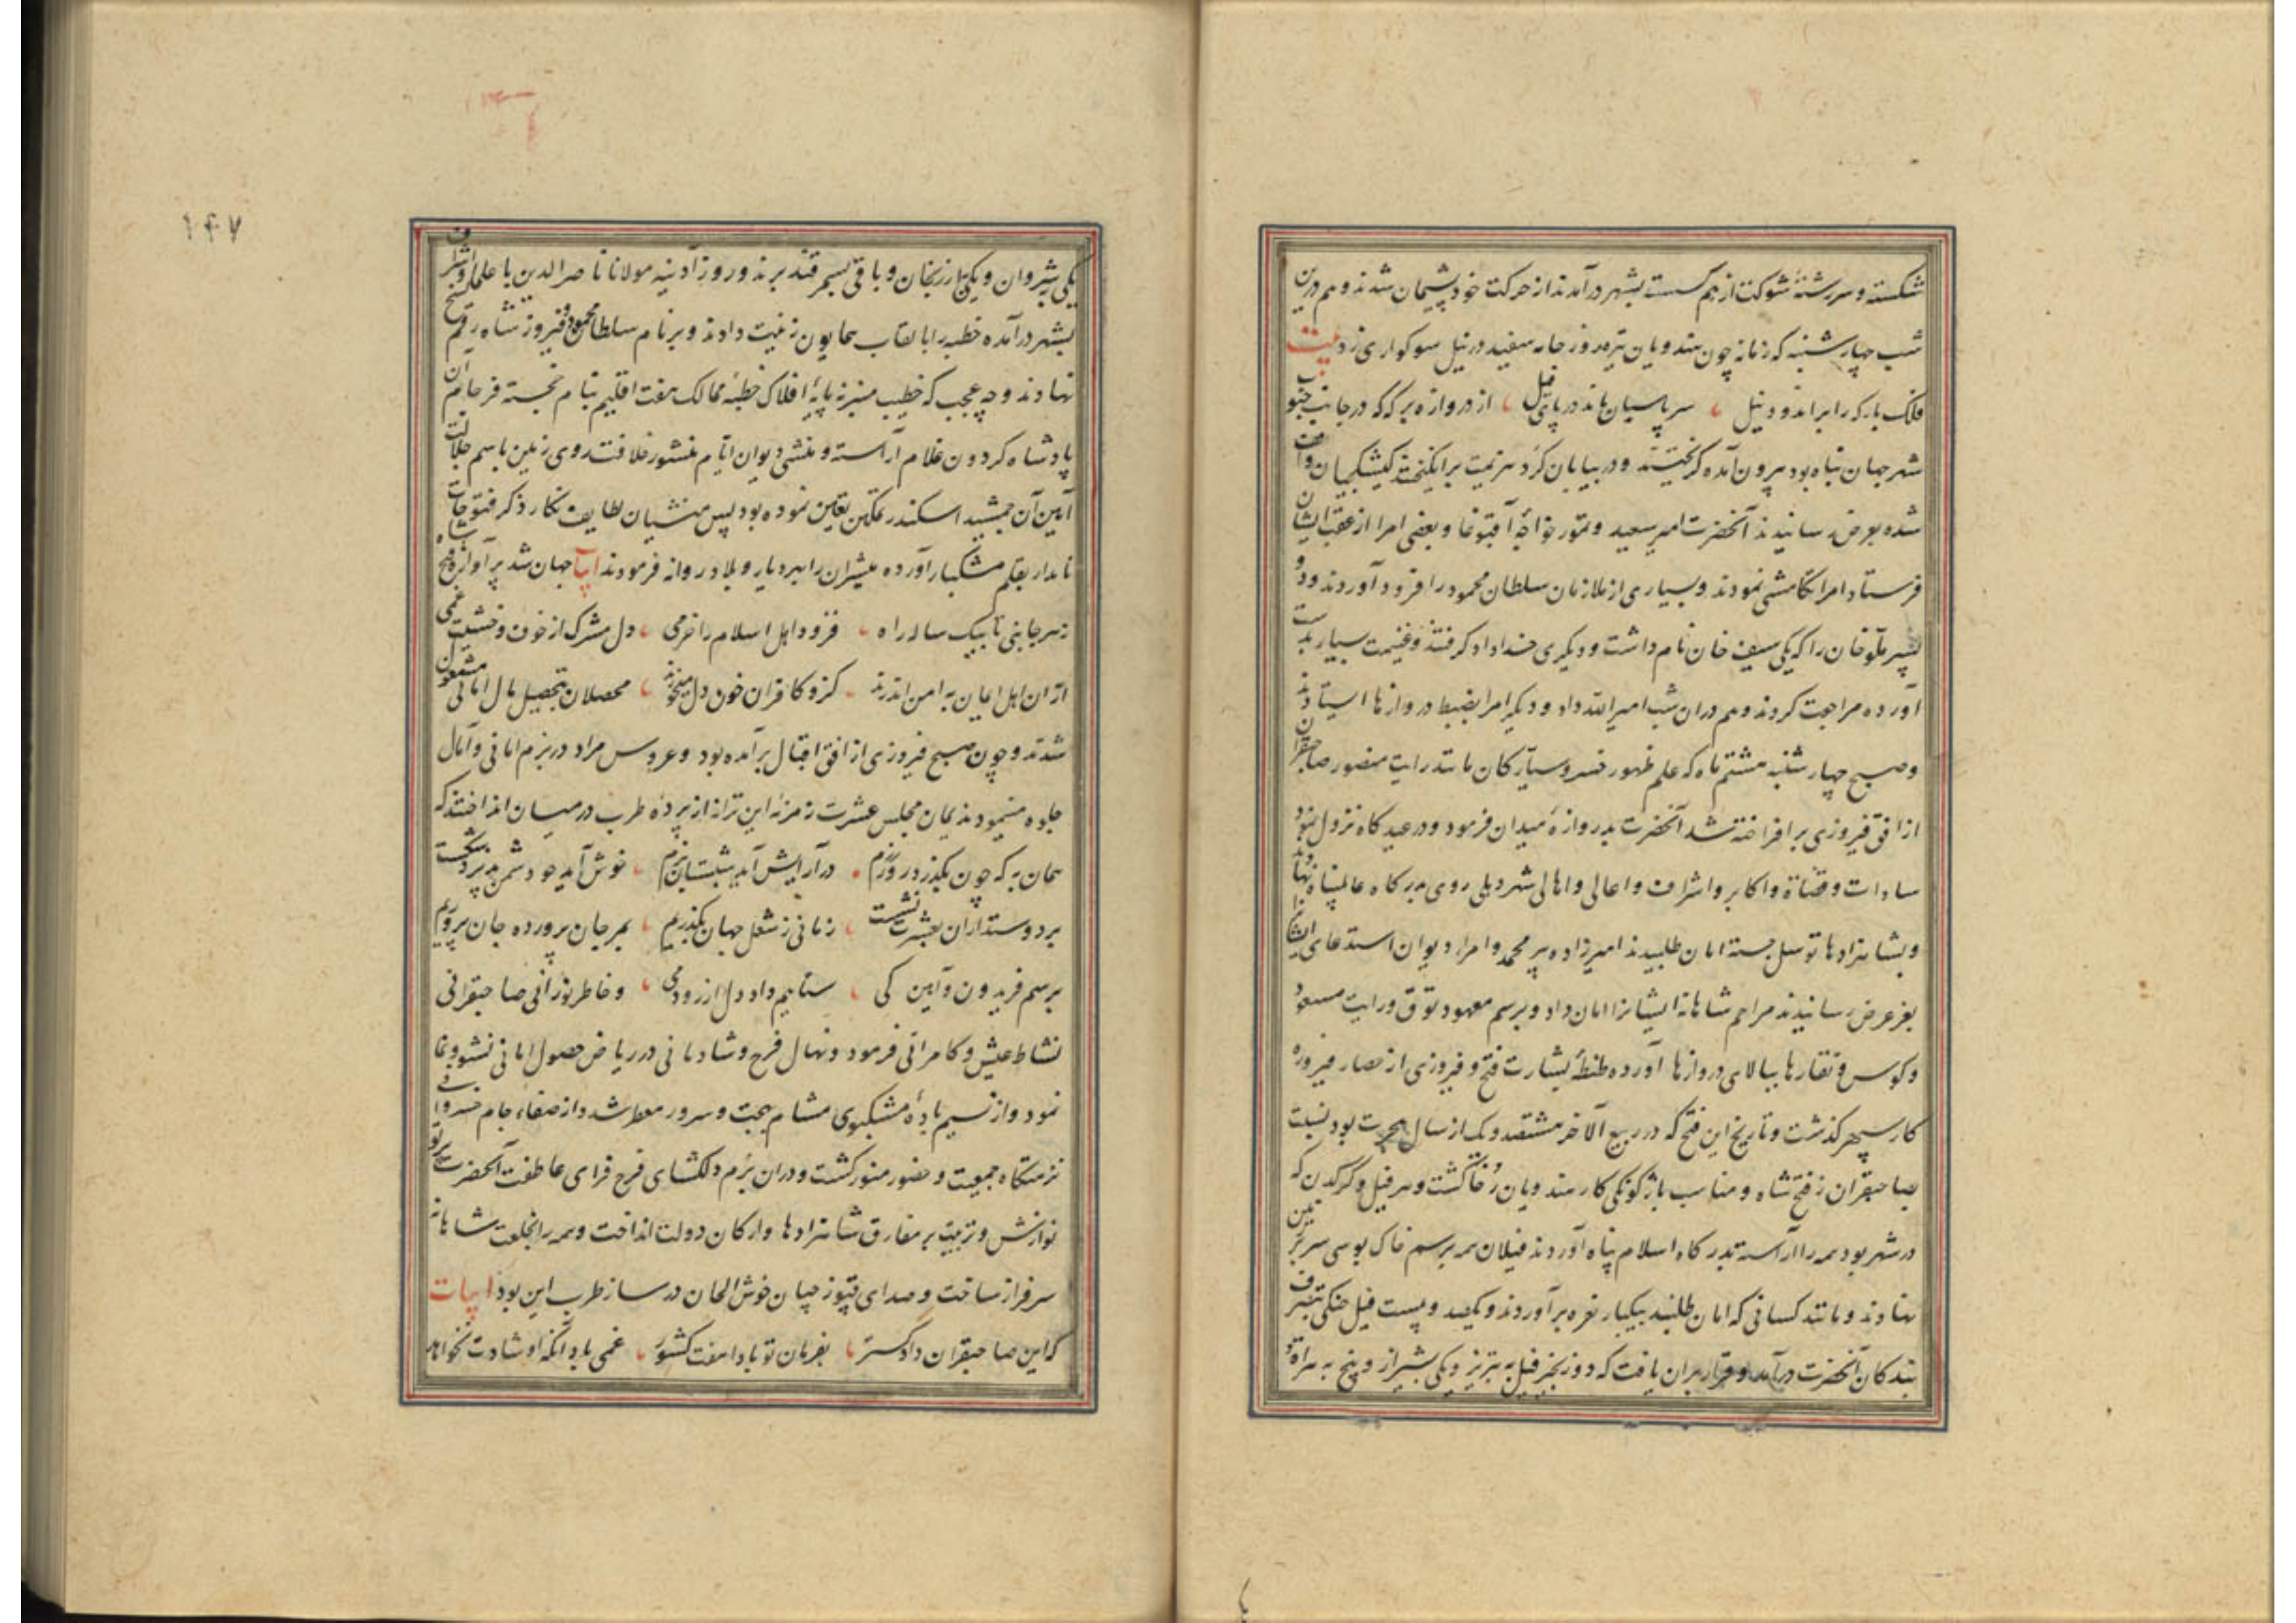 شکسته و سررشتهٔ شوکت از هم گسسته بشهر درآمدند از حرکت خود پشیمان شدند و هم درین
شب چهارشنبه که زمانه چون هندویان تیره روز جامه سفید در نیل سوکواری زد بیت
فلک بارکه را براندود نیل سر پاسبان ماند در پای فیل از دروازه برکه که در جانب جنوب
شهر جهان پناه بود بیرون آمده گریختند و در بیابان گرد هزیمت برانگیختند کیشکچیان واقف
شده بعرض رسانیدند آنحضرت امیر سعید و تمور خواجهٔ آقبوغا و بعضی امرا از عقب ایشان
فرستاد امرا تکامشی نمودند و بسیاری از ملازمان سلطان محمود را فرود آوردند و دو
پسر ملوخان را که یکی سیف خان نام داشت و دیگری خداداد گرفتند و غنیمت بسیار بدست
آورده مراجعت کردند و هم دران شب امیر الله داد و دیگر امرا بضبط دروازها ایستادند
و صبح چهارشنبه هشتم ماه که علم ظهور خسرو سیارکان مانند رایت منصور صاحبقران
از افق فیروزی برافراخته شد آنحضرت بدروازهٔ میدان فرمود و در عیدکاه نزول نمود
سادات و قضاة و اکابر و اشراف و اعالی و اهالی شهر دهلی روی بدرکاه عالمپناه نهادند
و بشاهزادها توسل جسته امان طلبیدند امیرزاده پیر محمد و امراء دیوان استدعای ایشانرا
بعز عرض رسانیدند مراحم شاهانه ایشانرا امان داد و برسم معهود توق و رایت مسعود
و کوس و نقارها ببالای دروازها آورده طنطنهٔ بشارت فتح و فیروزی از حصار فیروزه
کار سپهر گذشت و تاریخ این فتح که در ربیع الآخر هشتصد و یک از سال هجرت بود نسبت
صاحبقران ز فتح شاه و مناسب باژگونگی کار هندویان رخا گشت و هر فیل و کرکدن که
در شهر بود همه را آراسته بدرکاه اسلام پناه آوردند فیلان همه برسم خاک بوسی سر بر زمین
نهادند و مانند کسانی که امان طلبند بیکبار نعره برآوردند و یکصد و بیست فیل جنکی بتصرف
بندکان آنحضرت درآمد و قرار بران یافت که دو زنجیر فیل به تبریز و یکی بشیراز و پنج به هراة و
۱۴۷
یکی بشروان و یکی بارزنجان و باقی بسمرقند برند و روز آدینه مولانا ناصرالدین با علما و اشراف
بشهر درآمده خطبه را بالقاب همایون زینت دادند و بر نام سلطان محمود و فیروز شاه رقم نسخ
نهادند و چه عجب که خطیب منبر نه پایهٔ افلاک خطبه ممالک هفت اقلیم بنام خجسته فرجام آن
پادشاه گردون غلام آراسته و منشی دیوان ایام منشور خلافت روی زمین باسم جلالت
آیین آن جمشید اسکندر تمکین تعیین نموده بود پس منشیان لطایف نکار ذکر فتوحات
نامدار بقلم مشکبار آورده مبشران را بهر دیار و بلاد روانه فرمودند ابیات جهان شد پر آوازه فتح شاه
ز هر جانبی تا بیک ساله راه فزود اهل اسلام را خرمی دل مشرک از خوف و خشیت غمی
ازان اهل ایمان به امن اندرند کزو کافران خون دل میخورند محصلان بتحصیل مال امانی مشغول
شدند و چون صبح فیروزی از افق اقبال برآمده بود و عروس مراد در بزم امانی و آمال
جلوه مینمود ندیمان مجلس عشرت زمزمه این ترانه از پردهٔ طرب در میان انداختند که
همان به که چون بگذرد روز رزم در آرایش آید شبستان بزم خوش آید چو دشمن پذیرد شکست
بر دوستداران بعشرت نشست زمانی ز شغل جهان بگذریم بمی جان پرورده جان پروریم
برسم فریدون و آیین کی ستانیم داد دل از رود و می و خاطر نورانی صاحبقرانی
نشاط عیش و کامرانی فرمود و نهال فرح و شادمانی در ریاض حصول امانی نشو و نما
نمود و از نسیم بادهٔ مشکبوی مشام بهجت و سرور معطر شد و از صفاء جام خسروانی
نزهتکاه جمعیت و حضور منور کشت و دران بزم دلکشای فرح فزای عاطفت آنحضرت پرتو
نوازش و تربیت بر مفارق شاهزادها و ارکان دولت انداخت و همه را بخلعت شاهانه
سرفراز ساخت و صدای قپوزچیان خوش الحان در ساز طرب این بود ابیات
که این صاحبقران دادگستر بفرمان تو بادا هفت کشور غمی باد آنکه او شادت نخواهد